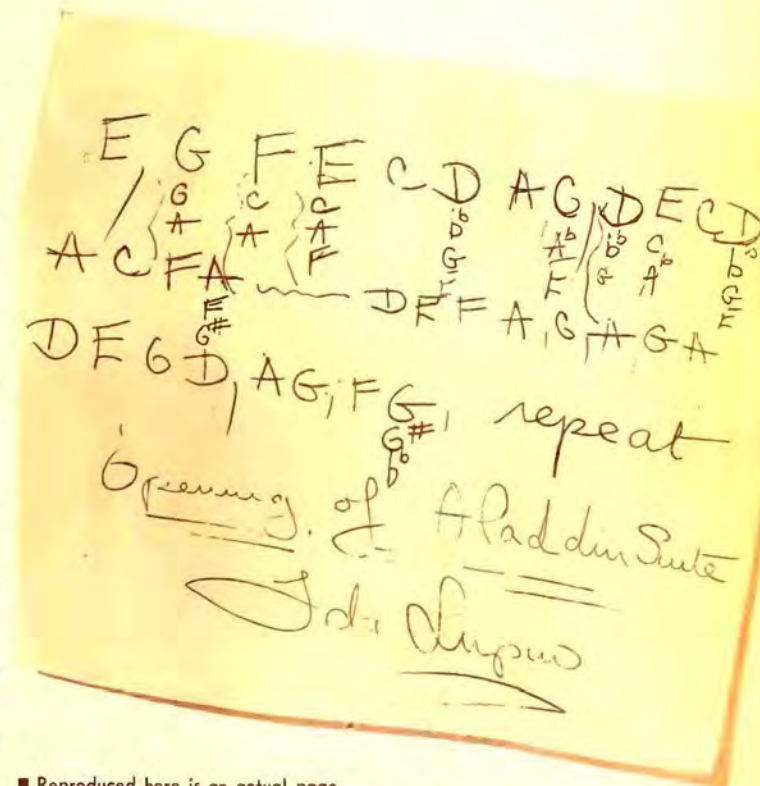 E G F E C D A G D E C D
G C C D♭ A♭ D♭ C D♭
A A A G E G A♭ G
F F E
A C F A D E F A, G, A G A
F
G#
D E G D, A G, F G, repeat
G#
G♭
b
Opening of Aladdin Suite
Ida Lupino
■ Reproduced here is an actual page